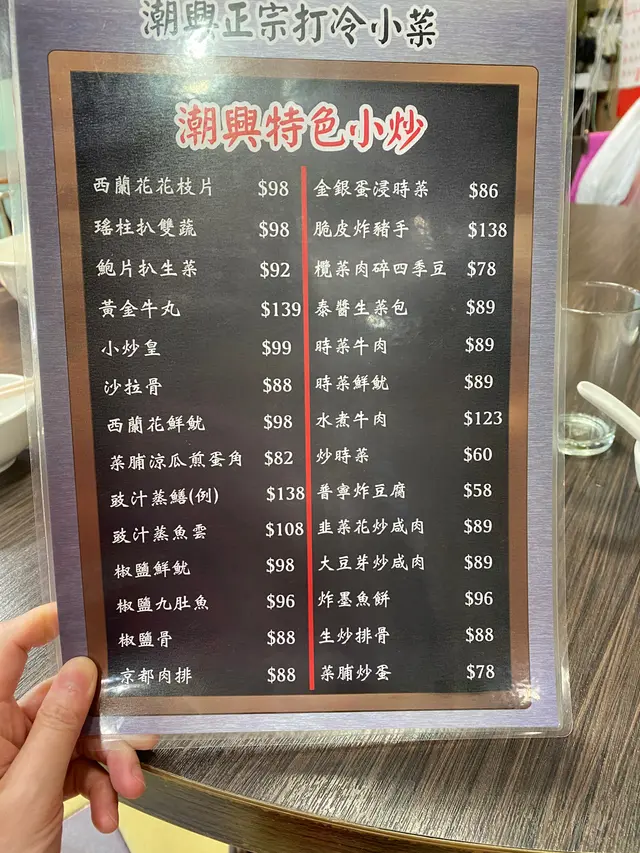 潮興正宗打冷小菜
潮興特色小炒
西蘭花花枝片 $98
瑤柱扒雙蔬 $98
鮑片扒生菜 $92
黃金牛丸 $139
小炒皇 $99
沙拉骨 $88
西蘭花鮮魷 $98
菜脯涼瓜煎蛋角 $82
豉汁蒸鱔(例) $138
豉汁蒸魚雲 $108
椒鹽鮮魷 $98
椒鹽九肚魚 $96
椒鹽骨 $88
京都肉排 $88
金銀蛋浸時菜 $86
脆皮炸豬手 $138
欖菜肉碎四季豆 $78
泰醬生菜包 $89
時菜牛肉 $89
時菜鮮魷 $89
水煮牛肉 $123
炒時菜 $60
普寧炸豆腐 $58
韭菜花炒咸肉 $89
大豆芽炒咸肉 $89
炸墨魚餅 $96
生炒排骨 $88
菜脯炒蛋 $78